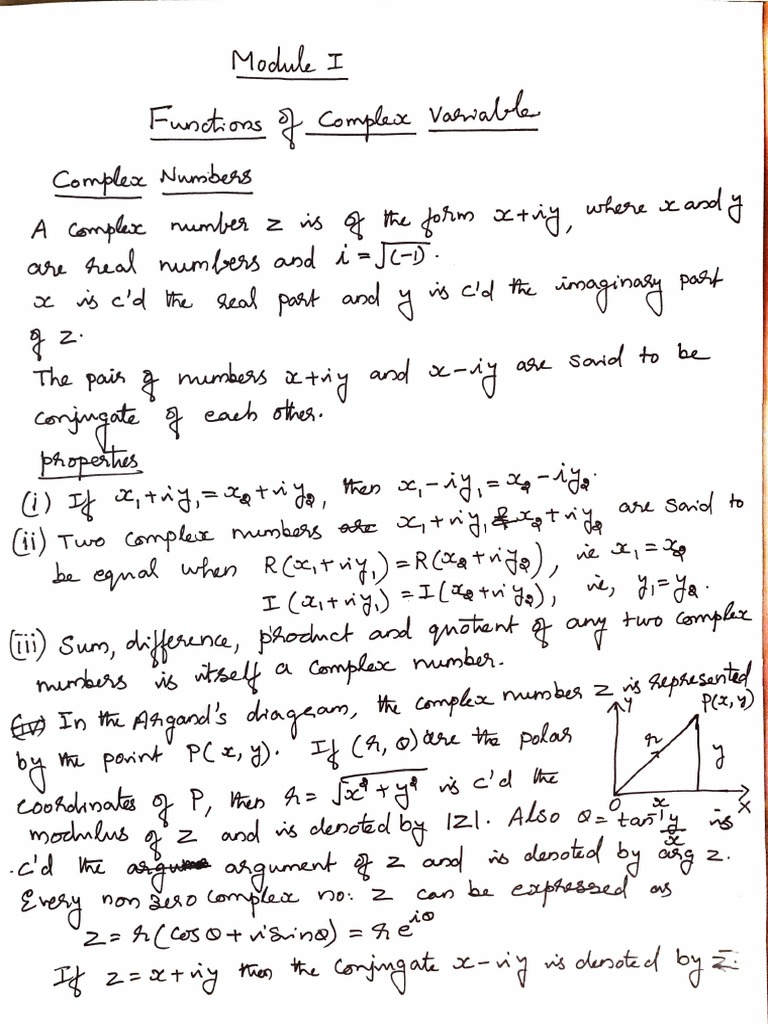 Module I
Functions of Complex Variable
Complex Numbers
A complex number z is of the form x+iy, where x and y
are real numbers and i = √(-1).
x is c'd the real part and y is c'd the imaginary part
of z.
The pair of numbers x+iy and x-iy are said to be
conjugate of each other.
properties
(i) If x₁+iy₁ = x₂+iy₂, then x₁-iy₁ = x₂-iy₂.
(ii) Two complex numbers x₁+iy₁ & x₂+iy₂ are said to
be equal when R(x₁+iy₁) = R(x₂+iy₂), ie x₁ = x₂
I(x₁+iy₁) = I(x₂+iy₂), ie, y₁=y₂.
(iii) Sum, difference, product and quotient of any two complex
numbers is itself a complex number.
(iv) In the Argand's diagram, the complex number z is represented
by the point P(x, y). If (r, θ) are the polar
coordinates of P, then r = √x²+y² is c'd the
modulus of z and is denoted by |z|. Also θ = tan⁻¹ y/x is
c'd the argument of z and is denoted by arg z.
Every non zero complex no: z can be expressed as
z = r(cosθ + i sinθ) = r e^iθ
If z = x+iy then the conjugate x-iy is denoted by z̄.
y
P(x, y)
r
y
O
x
X